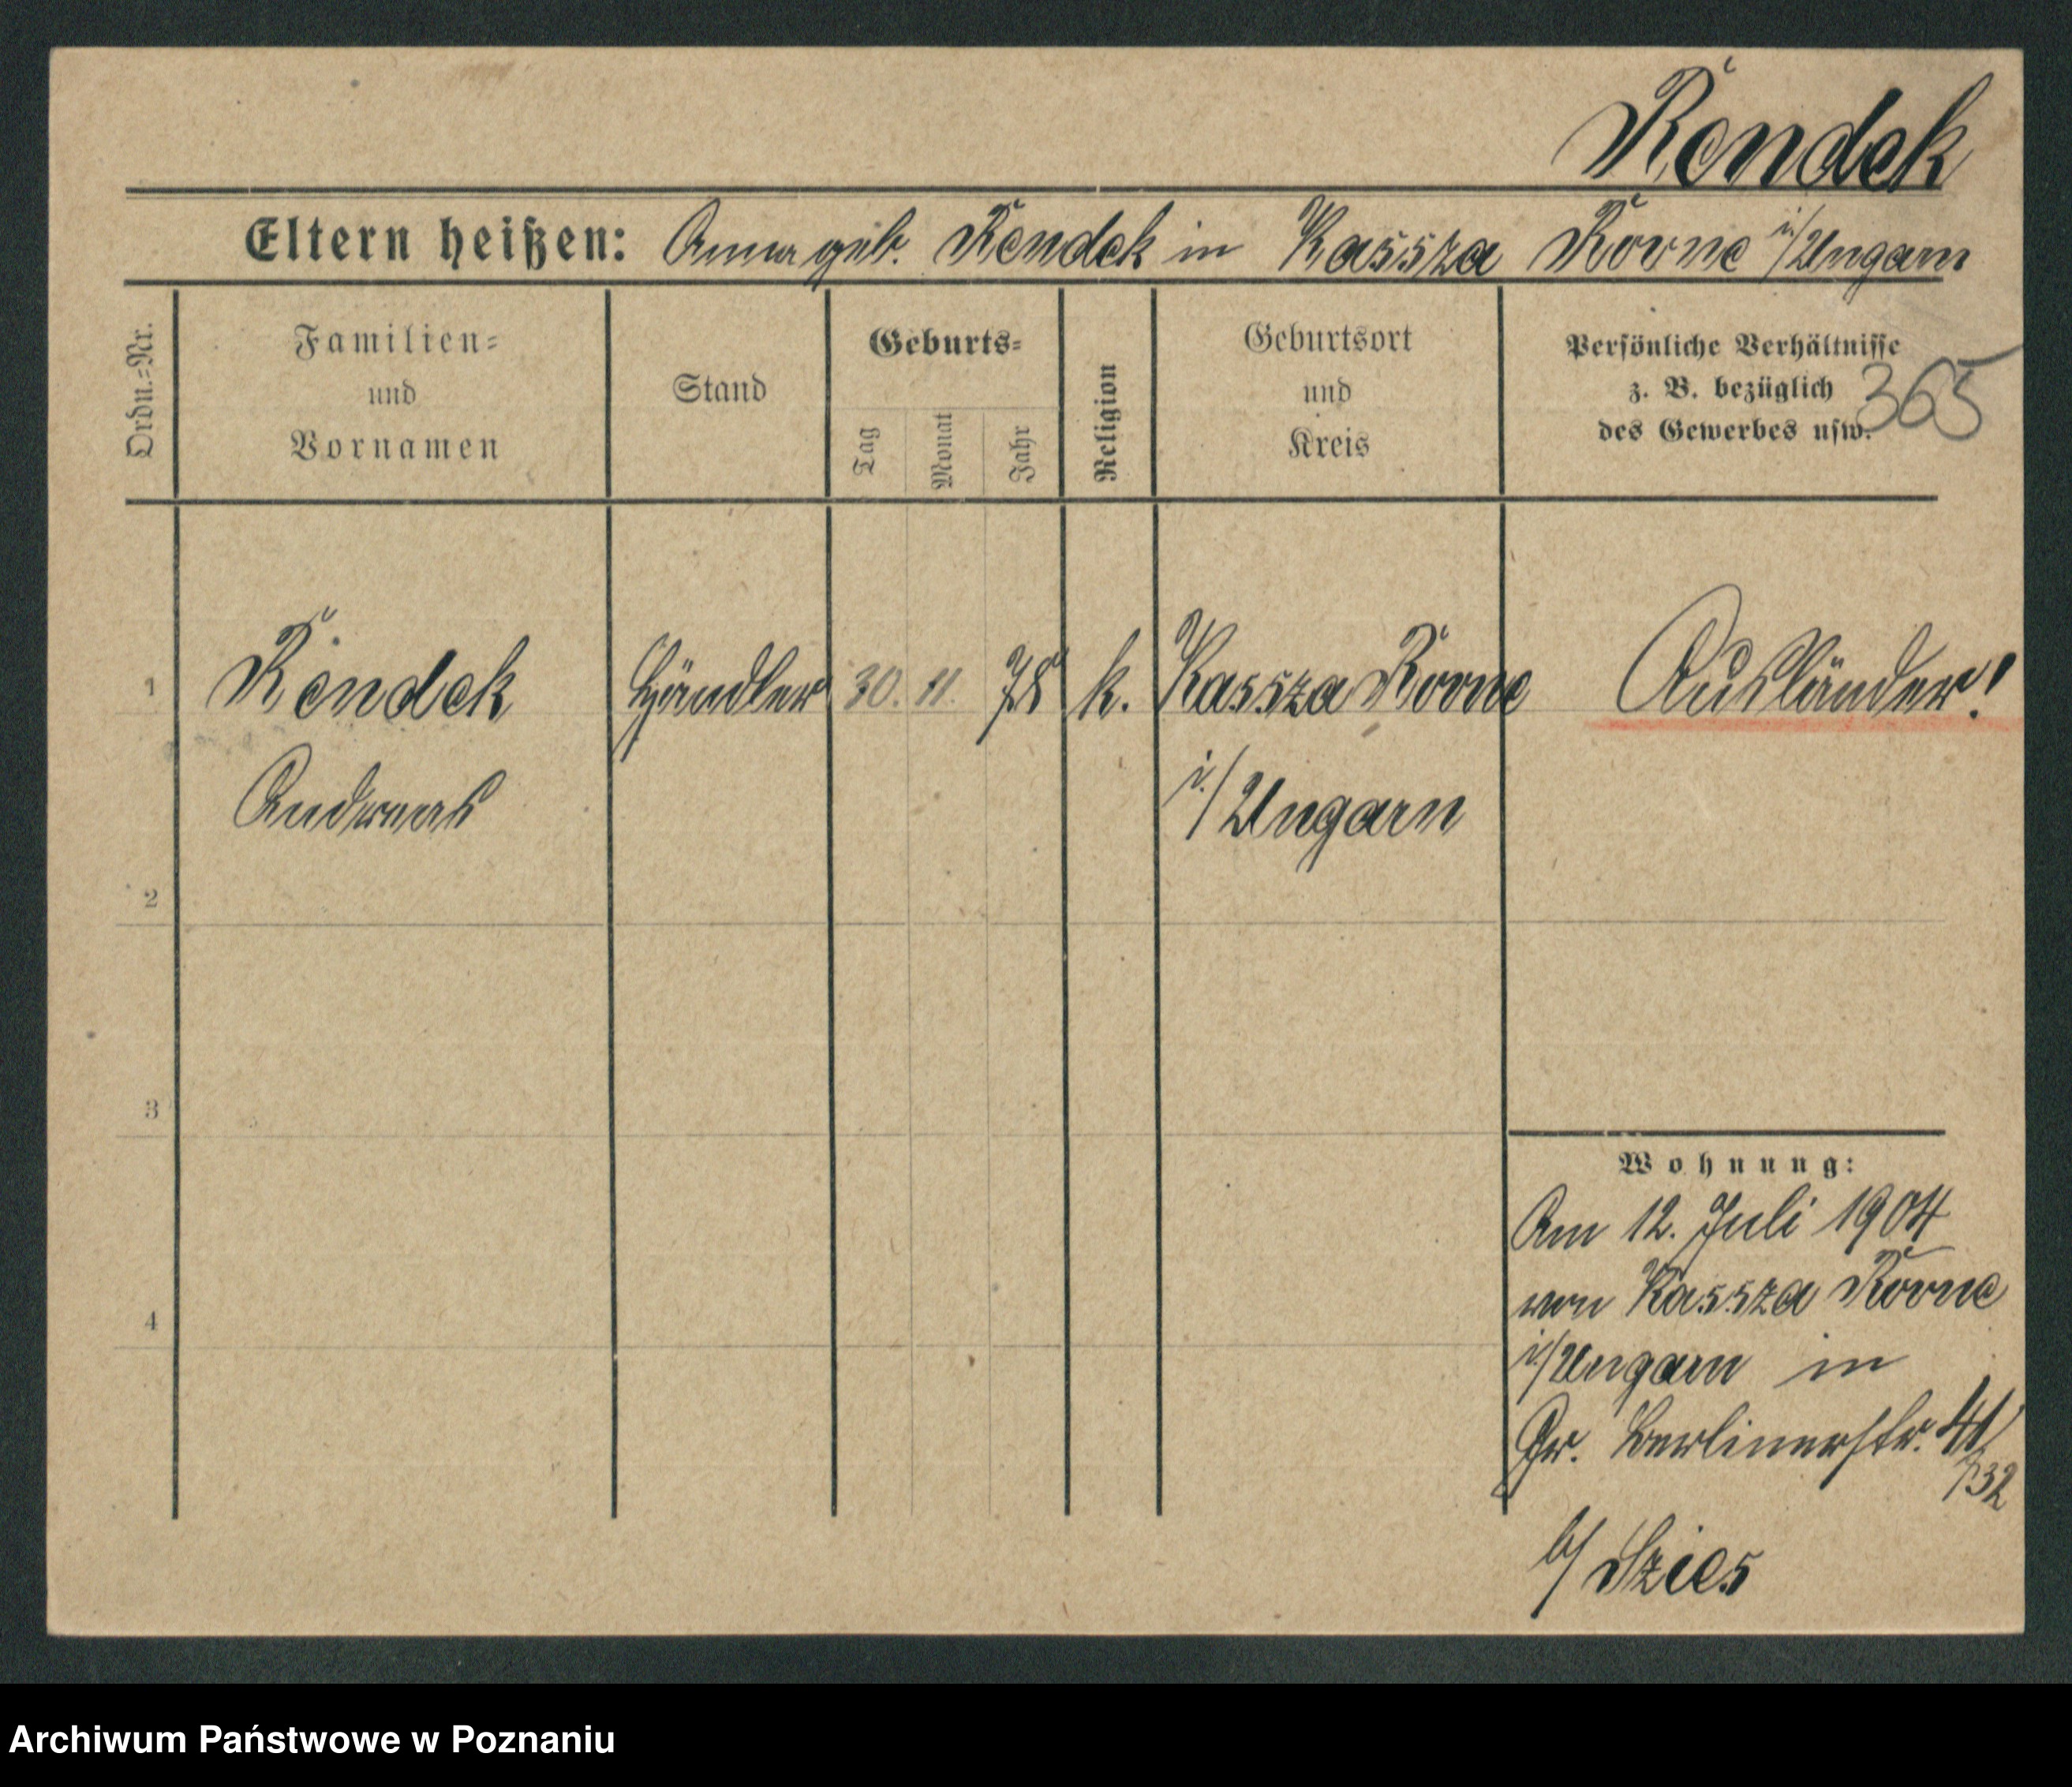 Rendek
Eltern heißen: Anna geb. Rendek in Kassza Rovne i/Ungarn
Ordn.=Nr.
Familien=
und
Vornamen
Stand
Geburts=
Tag
Monat
Jahr
Religion
Geburtsort
und
Kreis
Persönliche Verhältnisse
z. B. bezüglich
des Gewerbes usw.
365
1
Rendek
Andreas
Händler
30. 11. 78
k.
Kassza Rovne
i./Ungarn
Ausländer!
2
3
4
Wohnung:
Am 12. Juli 1904
von Kassza Rovne
i/Ungarn in
Gr. Berlinerstr. 41/
/32
b/ Szies
Archiwum Państwowe w Poznaniu